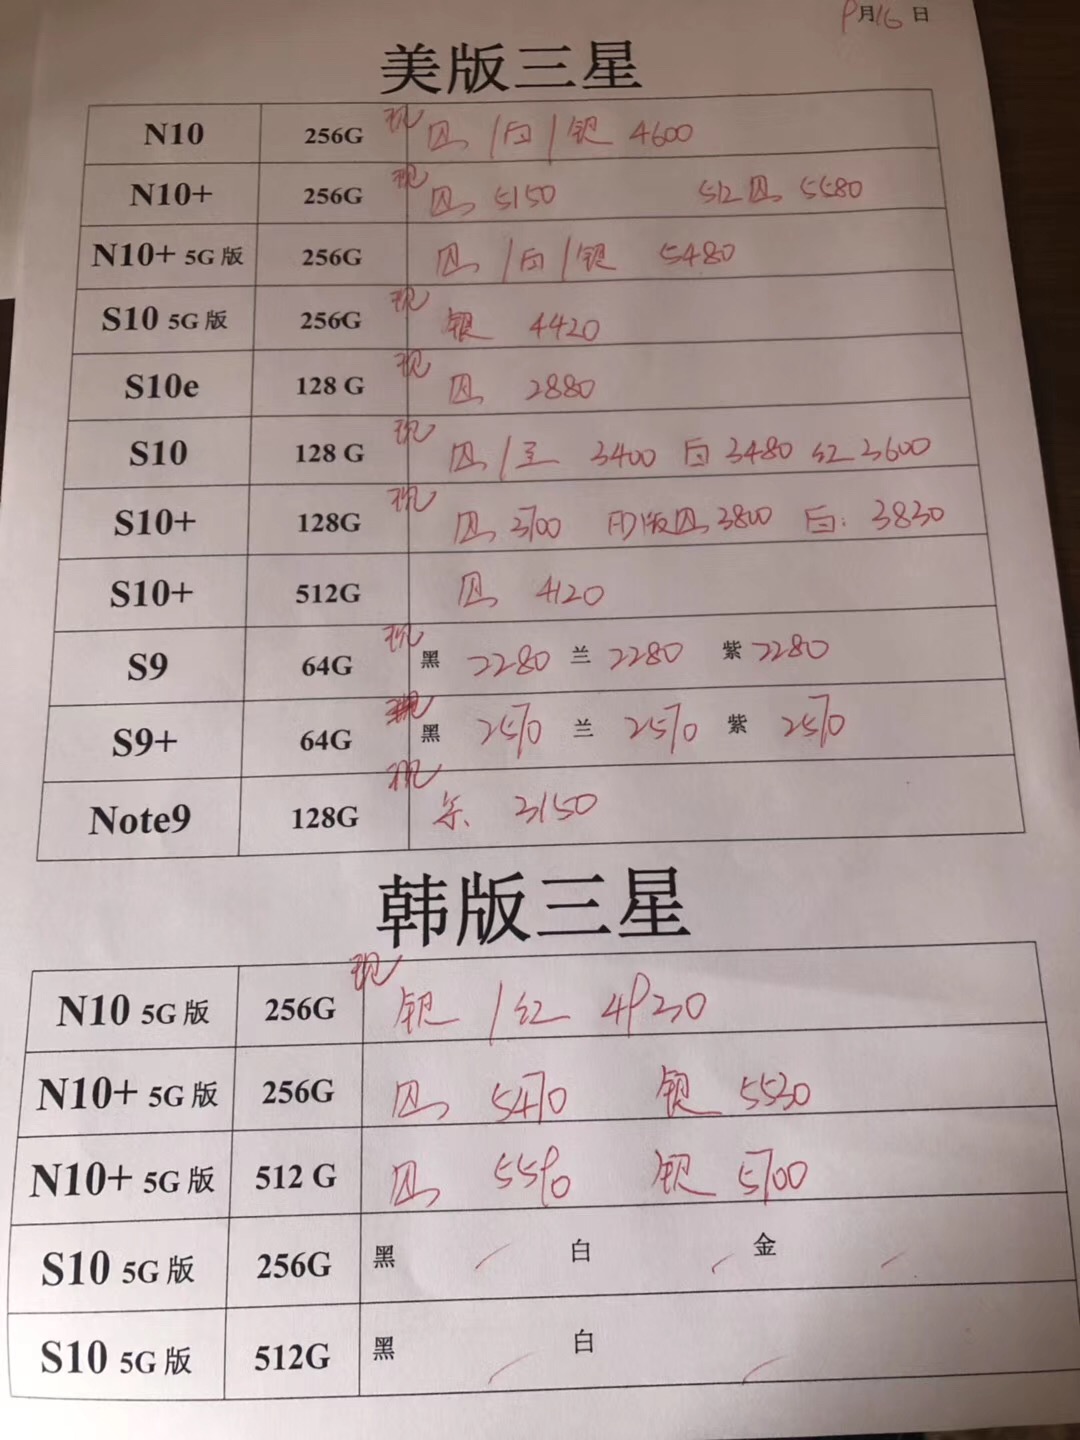 9月16日
美版三星
N10 256G 现 黑/白/银 4600
N10+ 256G 现 黑 5150 512黑 5580
N10+ 5G版 256G 黑/白/银 5480
S10 5G版 256G 现 银 4420
S10e 128 G 现 黑 2880
S10 128 G 现 黑/蓝 3400 白 3480 红 3600
S10+ 128G 现 黑 3700 印版黑 3800 白: 3830
S10+ 512G 黑 4120
S9 64G 现 黑 2280 兰 2280 紫 2280
S9+ 64G 现 黑 2570 兰 2570 紫 2570
Note9 128G 现 3150
韩版三星
N10 5G版 256G 现 银/红 4930
N10+ 5G版 256G 黑 5470 银 5530
N10+ 5G版 512 G 黑 5590 银 5700
S10 5G版 256G 黑 / 白 / 金 /
S10 5G版 512G 黑 / 白 /